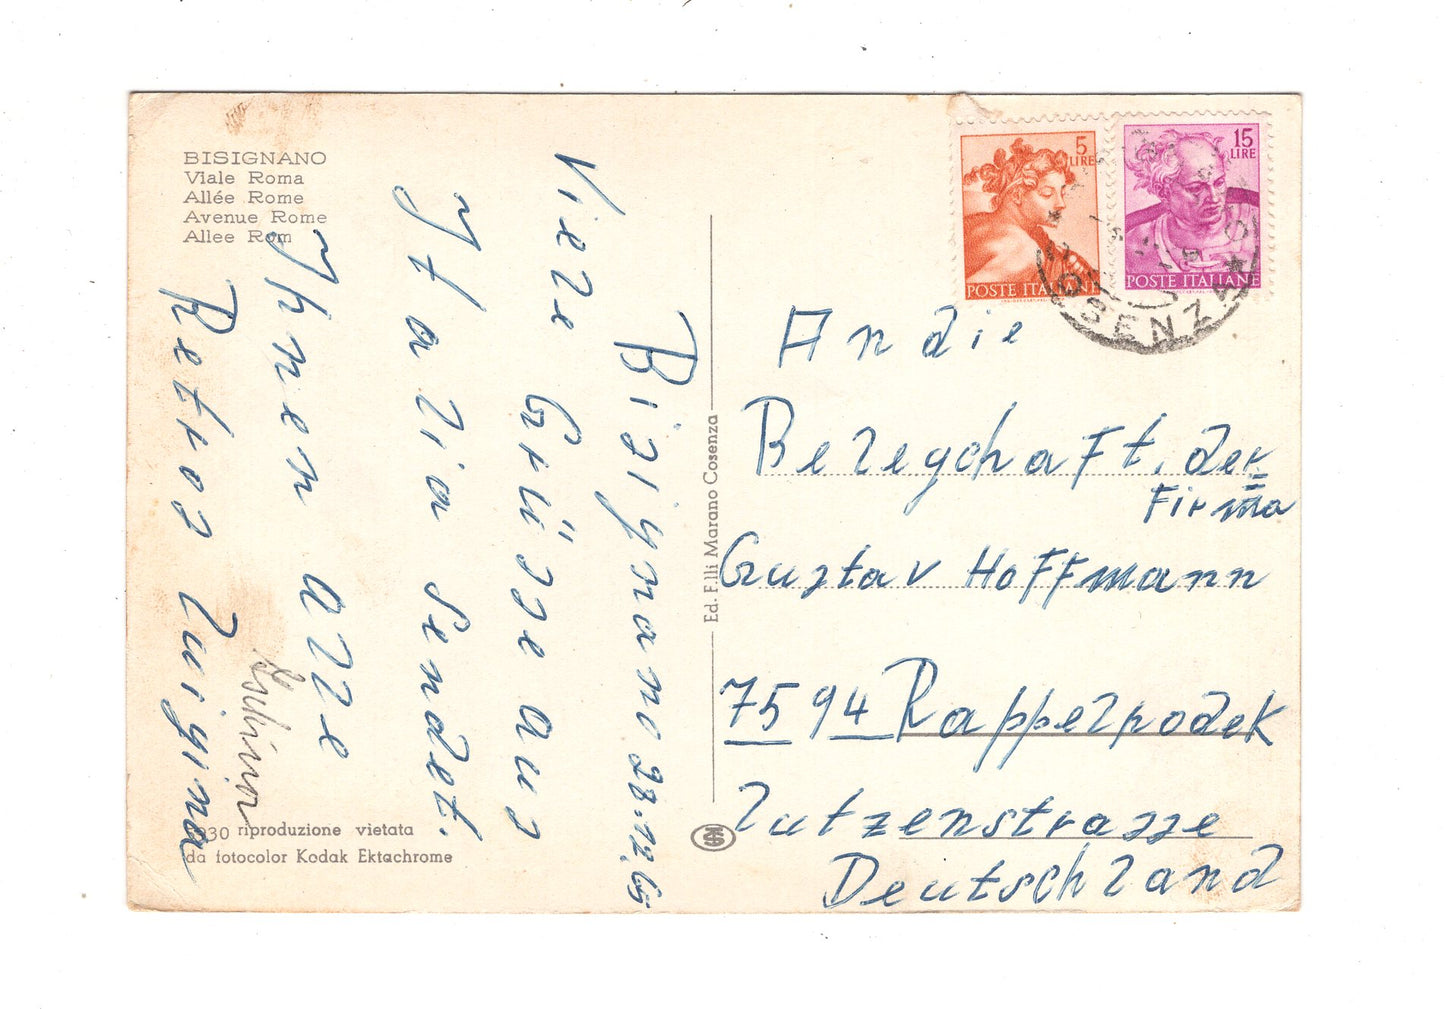 BISIGNANO
Viale Roma
Allée Rome
Avenue Rome
Allee Rom
Bisignano 28.12.65
Viele Grüsse aus
Italia sendet.
Ihnen alle
Retros Luigina
5 LIRE
POSTE ITALIANE
15 LIRE
POSTE ITALIANE
COSENZA
An die
Belegchaft. der
Firma
Gustav Hoffmann
7594 Rappelrodek
Lutzenstrasse
Deutschland
Ed. F.lli Marano Cosenza
riproduzione vietata
da fotocolor Kodak Ektachrome